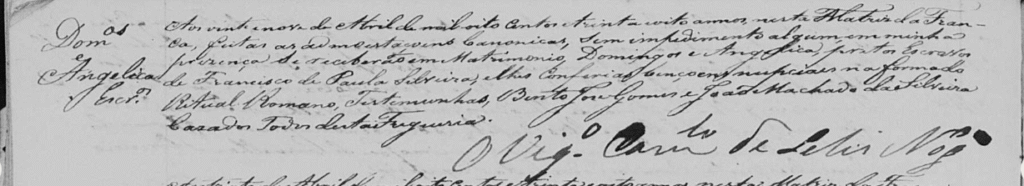 Dom.os
e
Angelica
Escr.os
Aos vinte nove de Abril de mil oito centos e trinta e oito annos, nesta Matriz da Fran-
ca, feitas as admoestaçoens Canonicas, sem impedimento algum, em minha
prezença se receberão em Matrimonio Domingos e Angelica, pretos Escravos
de Francisco de Paula Silveira, e lhes Conferi as bençoens nupciais na forma do
Ritual Romano, Testemunhas, Bento Joze Gomes e João Machado da Silveira
Cazados Todos desta Freguezia.
O Vig.o Cam.lo de Lelis Nog.